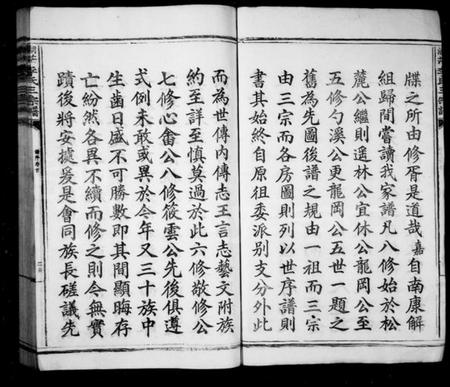 牒之所由修胥是道哉嘉自南康解
組歸間嘗讀我家譜凡八修始於松
麓公繼則遜林公宜休公龍岡公至
五修勺溪公更龍岡公五世一題之
舊為先圖後譜之規由一祖而三宗
由三宗而各房圖則列以世序譜則
書其始終自原祖委派别支分外此
而為世傳內傳志王言志藝文附族
約至詳至慎莫過於此六修敬修公
七修心畬公八修筱雲公先後俱遵
式例未敢或異於今年又三十族中
生齒日盛不可勝數即其間顯晦存
亡紛然各異不續而修之則今無實
蹟後將安據爰是會同族長磋議先